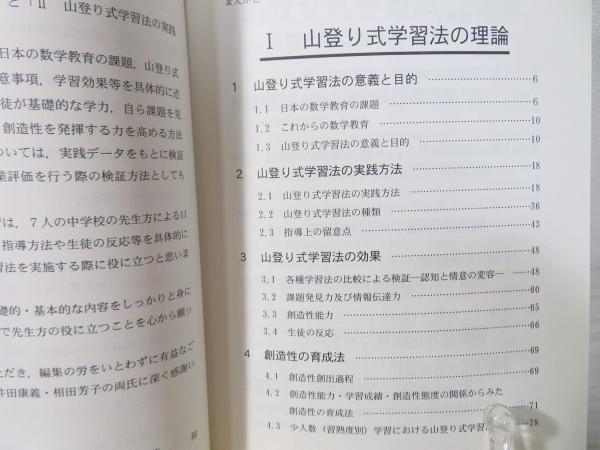 と「Ⅱ 山登り式学習法の実践
日本の数学教育の課題，山登り式
意事項，学習効果等を具体的に述
徒が基礎的な学力，自ら課題を見
創造性を発揮する力を高める方法
ついては，実践データをもとに検証
業評価を行う際の検証方法としても
は，７人の中学校の先生方による11
指導方法や生徒の反応等を具体的に
習法を実施する際に役に立つと思いま
礎的・基本的な内容をしっかりと身に
で先生方の役に立つことを心から願っ
ただき，編集の労をいとわずに有益なご
井田康義・相田芳子の両氏に深く感謝い
まえがき
Ⅰ 山登り式学習法の理論
1 山登り式学習法の意義と目的 ……6
1.1 日本の数学教育の課題 ……6
1.2 これからの数学教育 ……10
1.3 山登り式学習法の意義と目的 ……10
2 山登り式学習法の実践方法 ……18
2.1 山登り式学習法の実践方法 ……18
2.2 山登り式学習法の種類 ……36
2.3 指導上の留意点 ……43
3 山登り式学習法の効果 ……48
3.1 各種学習法の比較による検証―認知と情意の変容― ……48
3.2 課題発見力及び情報伝達力 ……60
3.3 創造性能力 ……65
3.4 生徒の反応 ……66
4 創造性の育成法 ……69
4.1 創造性創出過程 ……69
4.2 創造性能力・学習成績・創造性態度の関係からみた
創造性の育成法 ……71
4.3 少人数（習熟度別）学習における山登り式学習 ……78